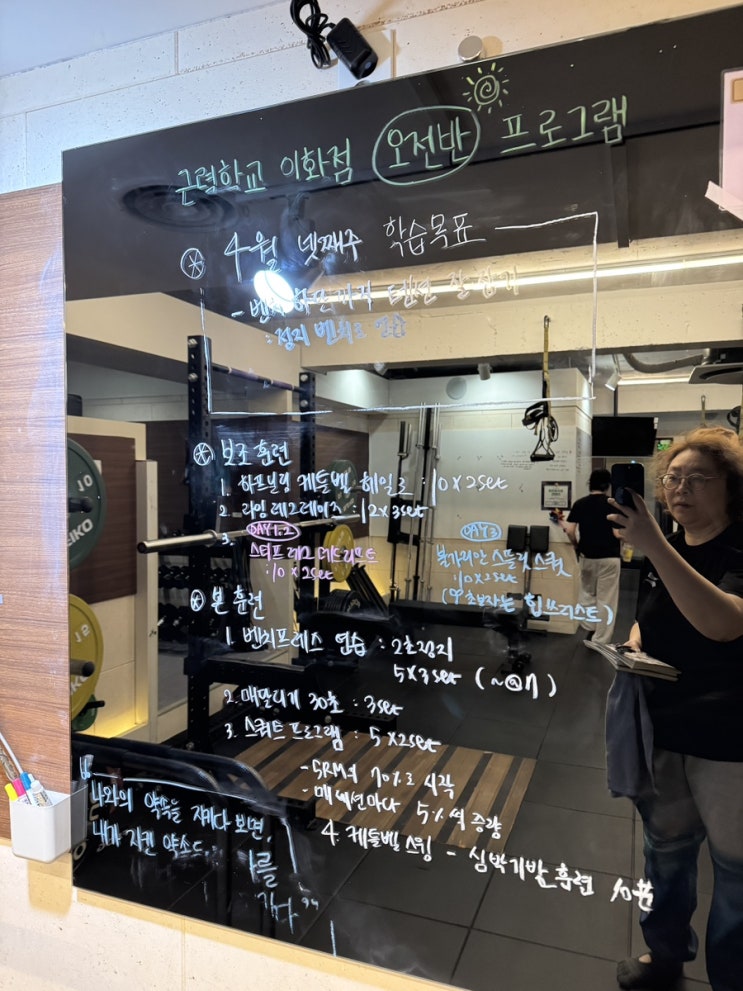 근력학교 이화점 오전반 프로그램
4월 넷째주 학습목표
- 벤치 하면까지 텐션 잘 잡기
: 정지 벤치로 연습
보조 훈련
1. 하프닐링 케틀벨 헤일로 : 10 x 2set
2. 라잉 레그레이즈 : 12 x 3set
3. DAY 1, 2
스티프 레그 데드리프트
: 10 x 2set
DAY 3
불가리안 스플릿 스쿼트
: 10 x 2set
초보자는 힙쓰러스트)
본 훈련
1. 벤치프레스 연습 : 2초정지
5 x 3set (~@7)
2. 매달리기 30초 : 3set
3. 스쿼트 프로그램 : 5 x 2set
- 5RM의 70%로 시작
- 매 세션마다 5%씩 증량
4. 케틀벨 스윙 - 심박기반 훈련 10분
나와의 약속을 지키다 보면,
내가 지킨 약속도
나를
KO
10
15